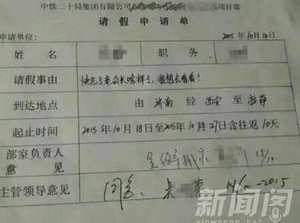 中铁二十局集团有限公司
请假申请单
申请单位: 2015年10月14日
姓名 职务
请假事由 快忘了老公长啥样了,我想去看看!
到达地点 由 济南 经 西宁 至
起止时间 2015年10月18日至2015年10月27日含往返10天
部室负责人意见
主管领导意见 同意 14/10-2015
新闻阁